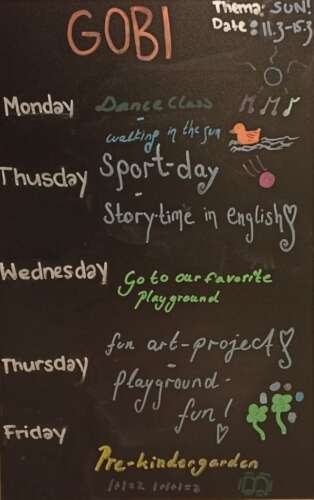 GOBI
Thema: SUN!
Date: 11.3-15.3
Monday Dance Class
-
walking in the sun
Thusday Sport-day
-
Storytime in english
Wednesday Go to our favorite
playground
Thursday fun art-project
-
playground-
fun!
Friday Pre-kindergarden
1+1=2 1+1+1=3